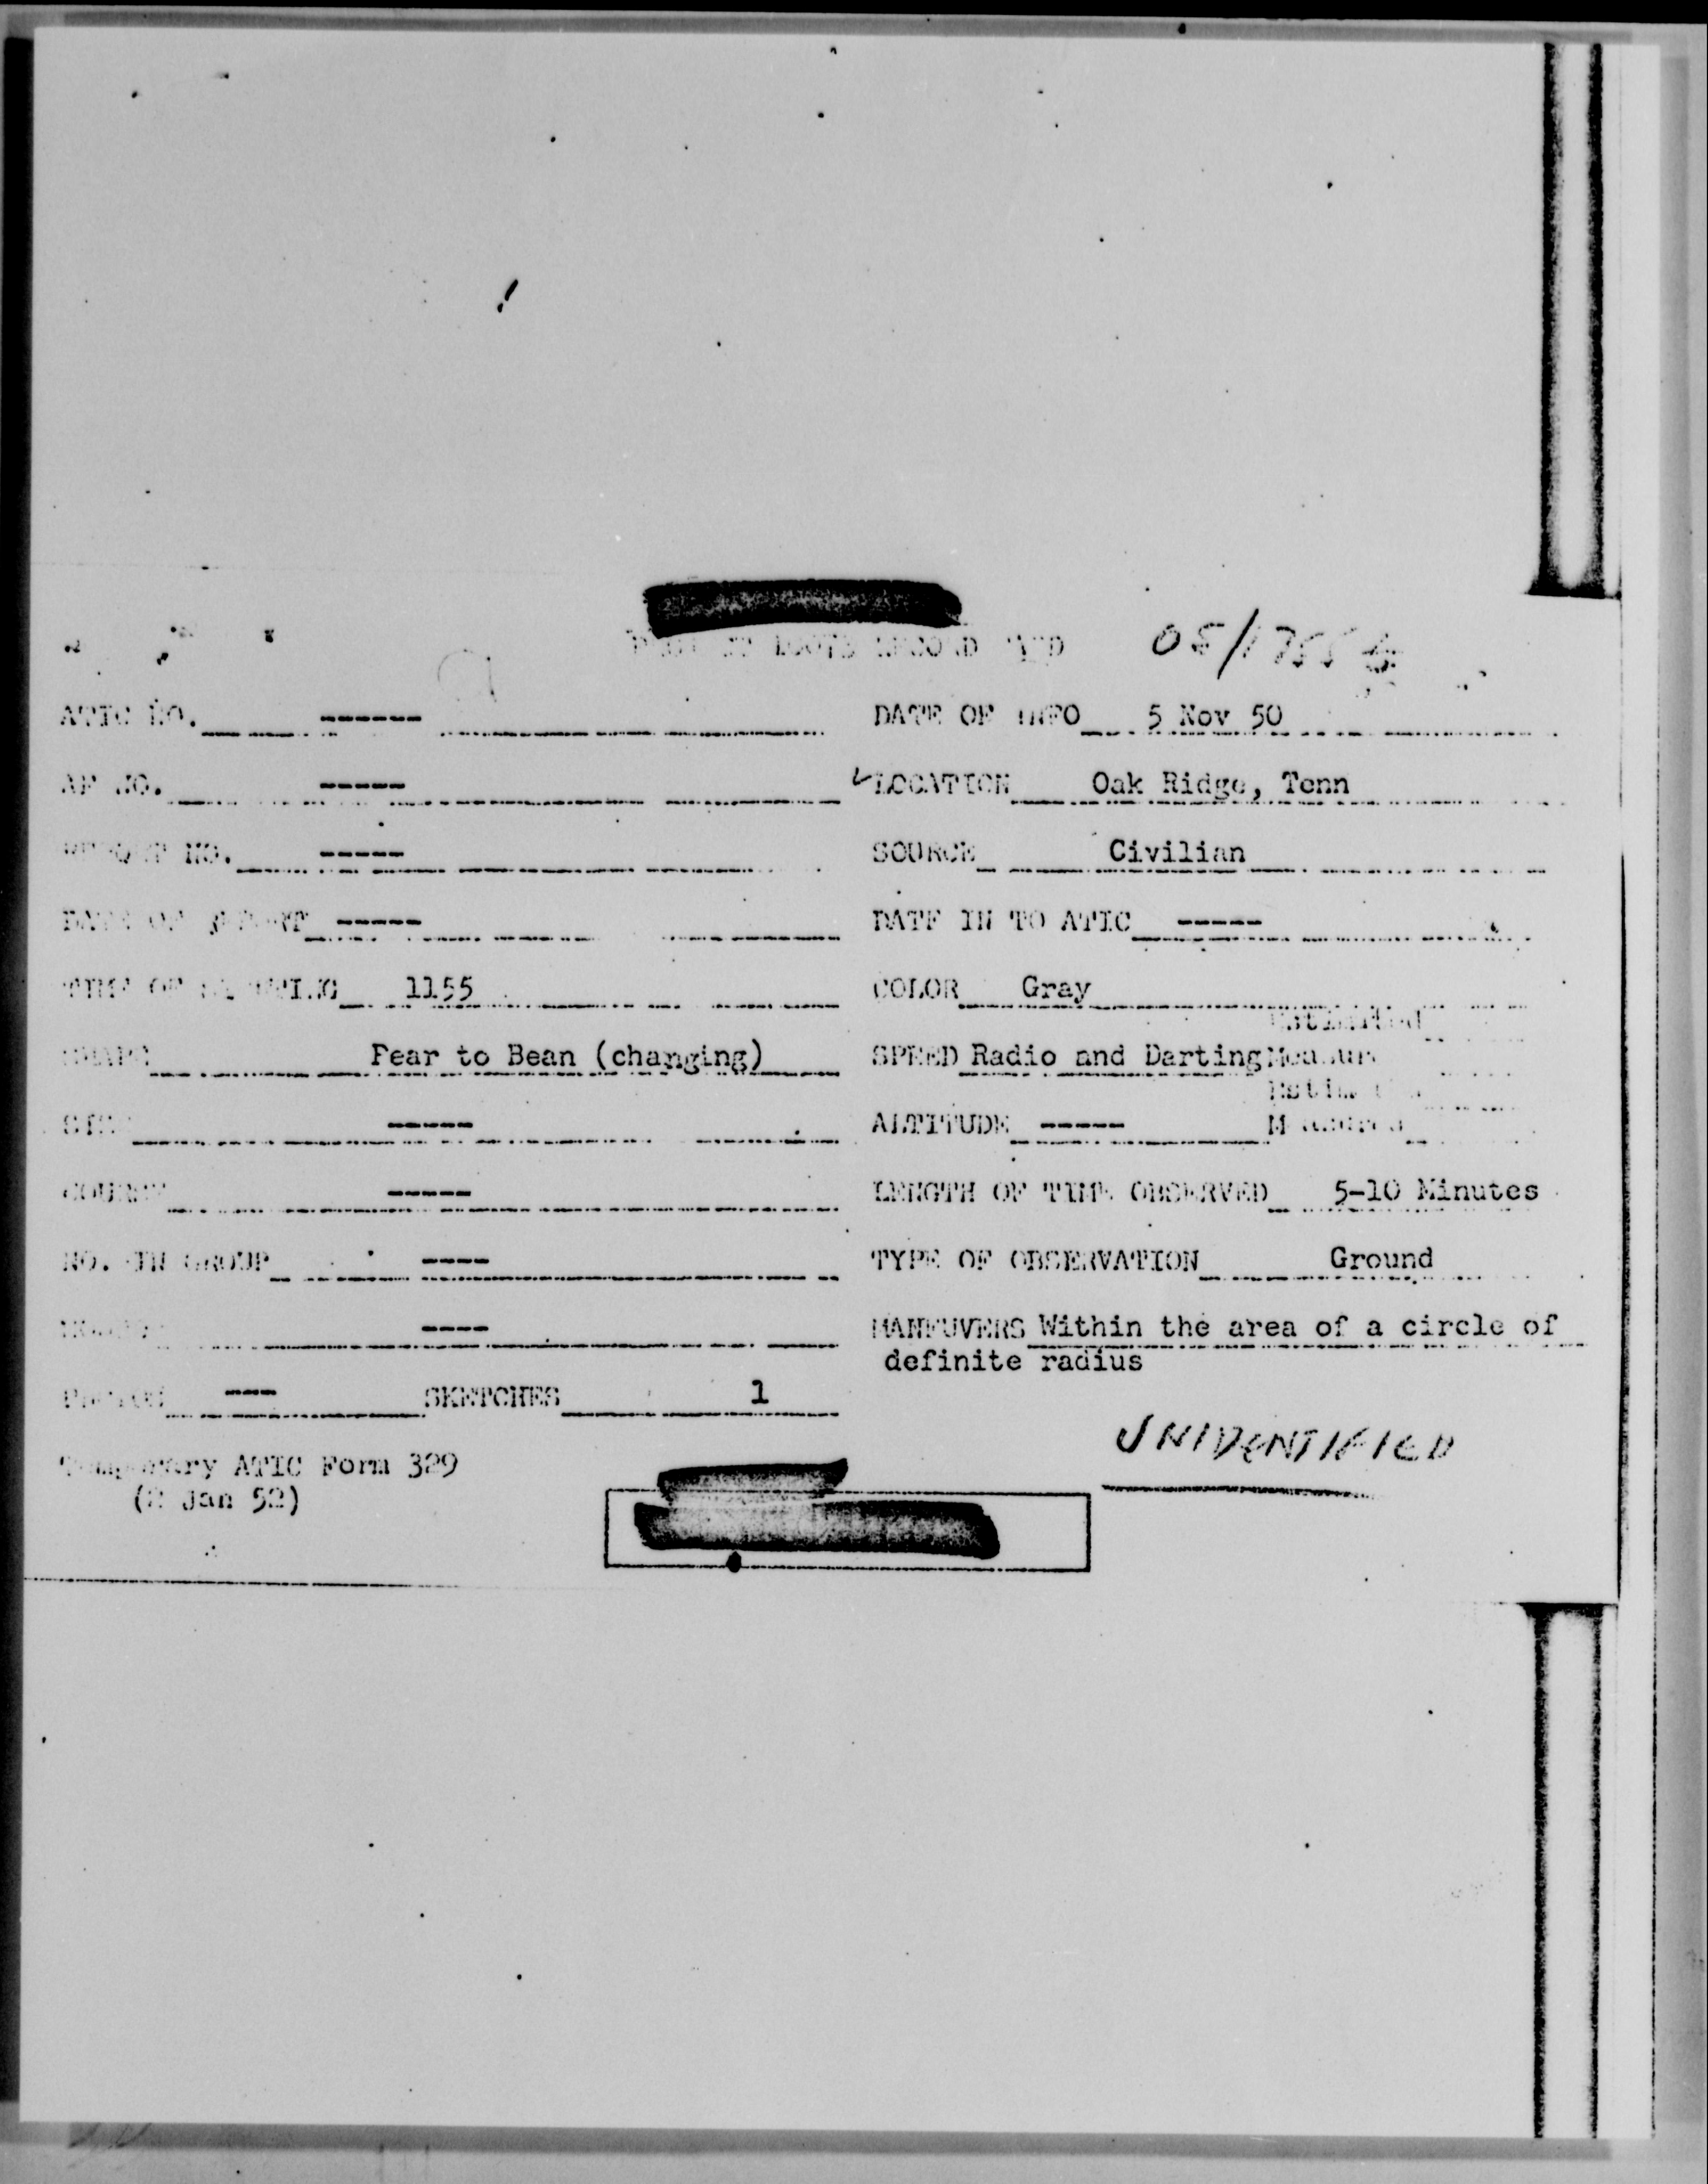 05/1755Z
ATIC NO. ------ DATE OF INFO 5 Nov 50
AF NO. ----- ✓LOCATION Oak Ridge, Tenn
NO. ----- SOURCE Civilian
DATE OF REPORT ----- DATE IN TO ATIC -----
TIME OF SIGHTING 1155 COLOR Gray
Estimated
SHAPE Pear to Bean (changing) SPEED Radio and Darting Measur
Estim
SIZE ----- ALTITUDE ----- Measured
COURSE ----- LENGTH OF TIME OBSERVED 5-10 Minutes
NO. IN GROUP ---- TYPE OF OBSERVATION Ground
---- MANEUVERS Within the area of a circle of
definite radius
--- SKETCHES 1
UNIDENTIFIED
Temporary ATIC Form 329
(2 Jan 52)